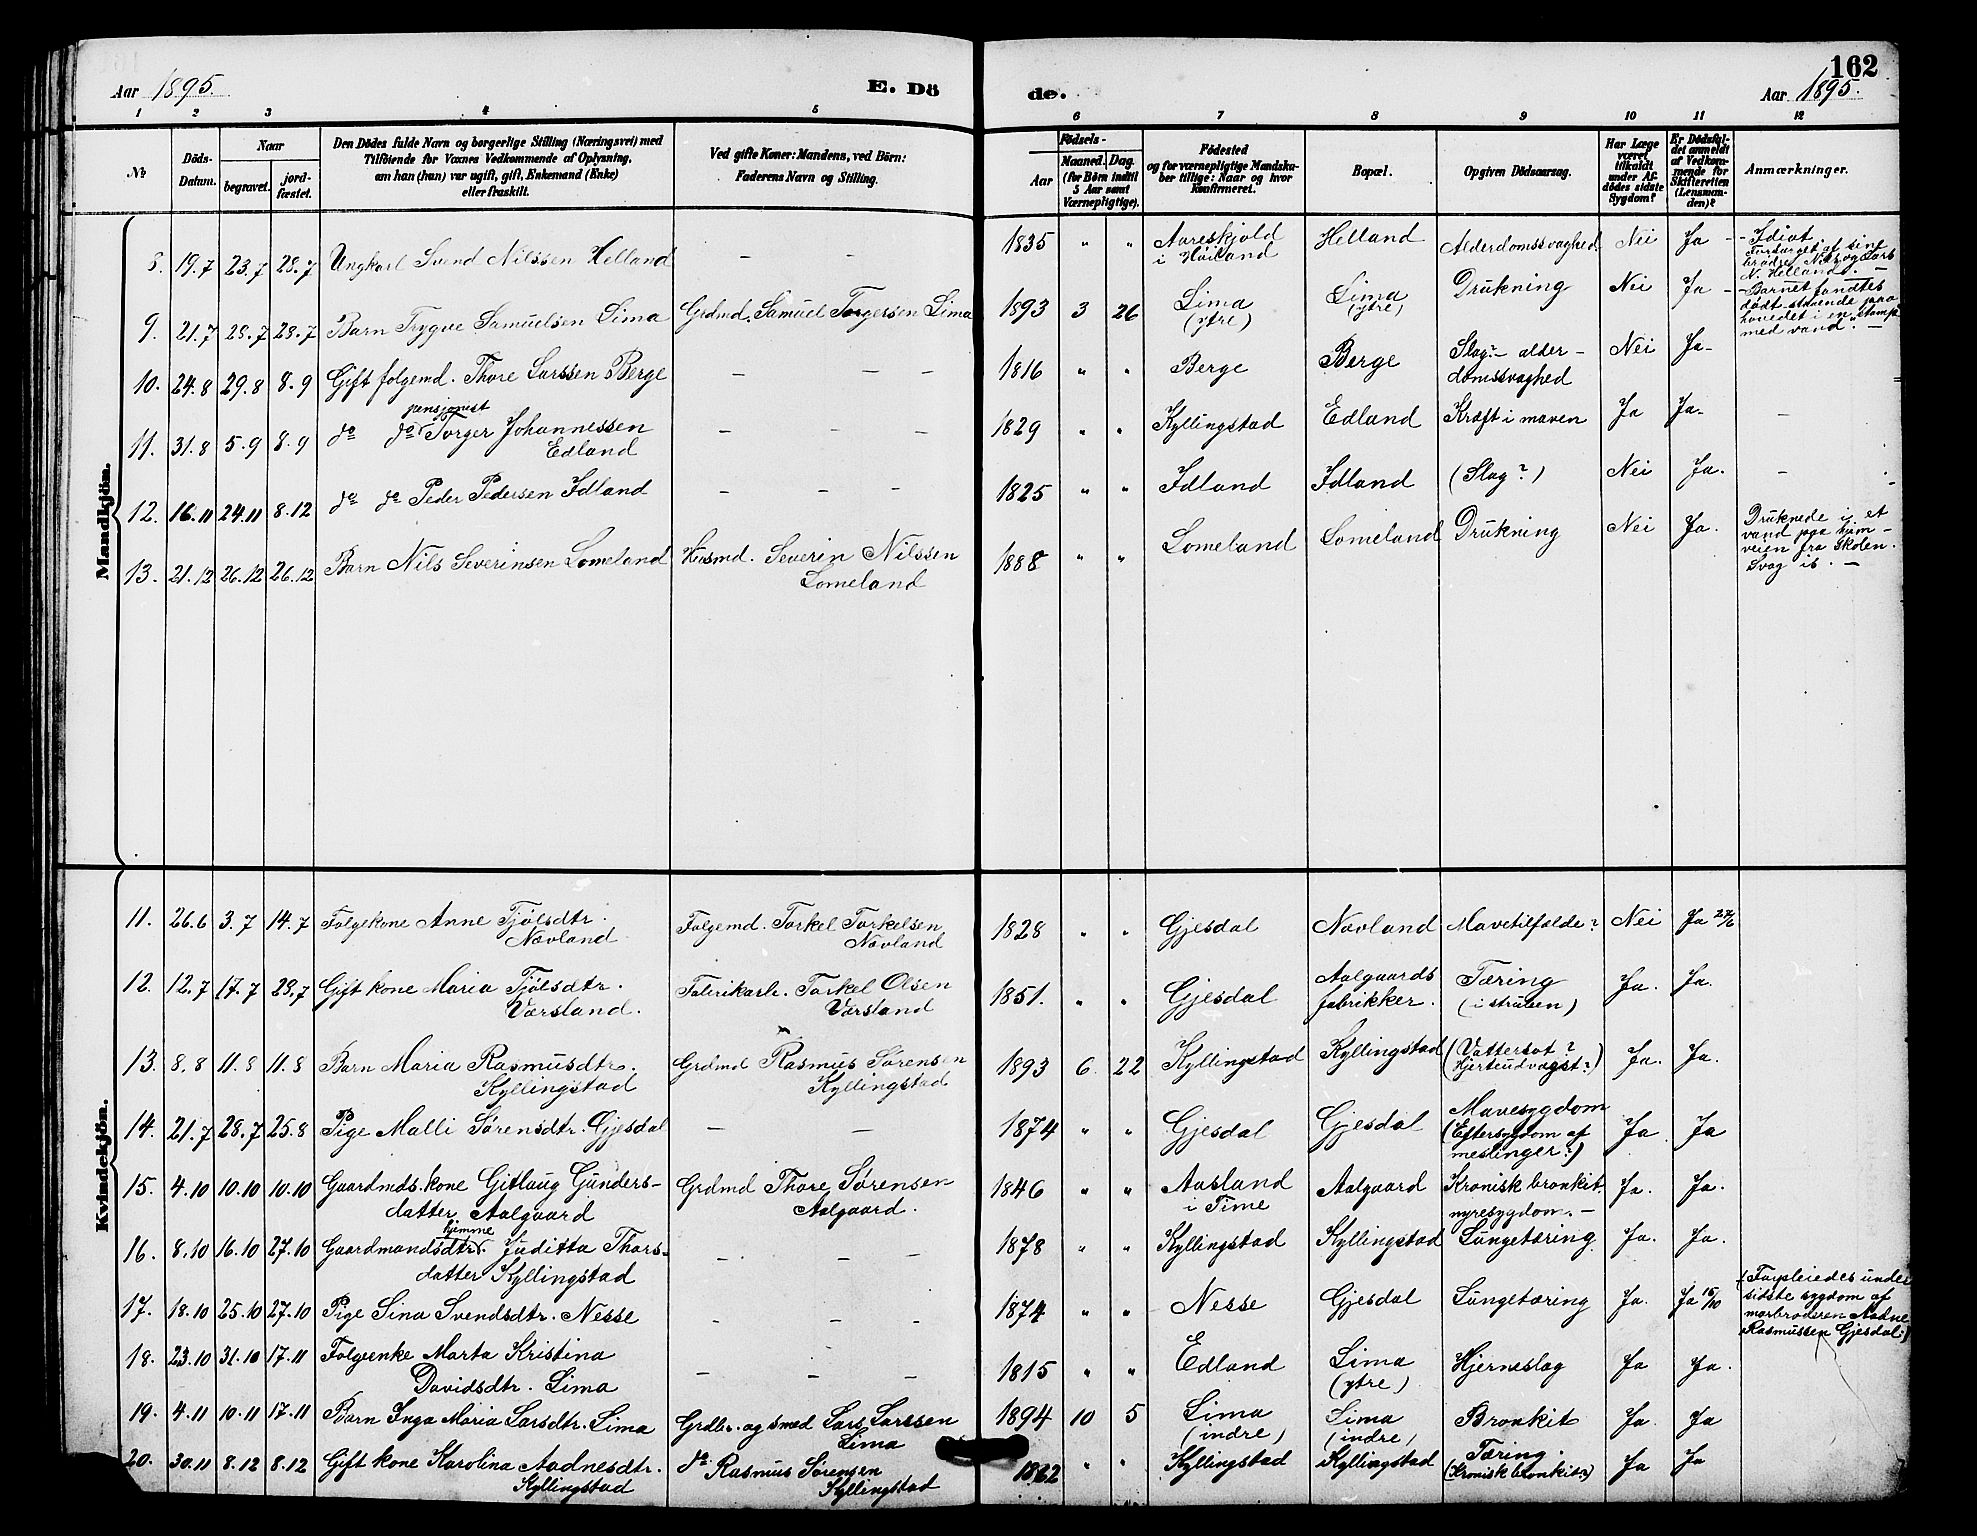 Aar 1895. E. Dö
de. 162
Aar 1895.
1 2 3 4 5 6 7 8 9 10 11 12
№
Döds-
Datum.
Naar
begravet.
jord-
fæstet.
Den Dödes fulde Navn og borgerlige Stilling (Næringsvei) med
Tilföiende for Voxnes Vedkommende af Oplysning,
om han (hun) var ugift, gift, Enkemand (Enke)
eller fraskilt.
Ved gifte Koner: Mandens, ved Börn:
Faderens Navn og Stilling.
Födsels-
Aar
Maaned. Dag.
(for Börn indtil
5 Aar samt
Værnepligtige).
Födested
og for værnepligtige Mandska-
ber tillige: Naar og hvor
Konfirmeret.
Bopæl.
Opgiven Dödsaarsag.
Har Læge
været
tilkaldt
under Af-
dödes sidste
Sygdom?
Er Dödsfal-
det anmeldt
af Vedkom-
mende for
Skifteretten
(Lensman-
den)?
Anmærkninger.
Mandkjön.
8. 19.7 23.7 28.7 Ungkarl Svend Nilssen Helland — — 1835 " " Aareskjold
i Høiland Helland Alderdomssvaghed. Nei Ja - - Idiot.
Forsørget af sine
brødre Nils og Lars
N. Helland. —
9. 21.7 28.7 28.7 Barn Trygve Samuelsen Lima Grdmd. Samuel Torgersen Lima 1893 3 26 Lima
(ytre) Lima
(ytre) Drukning Nei Ja - - Barnet fandtes
dødt staaende paa
hovedet i en "stamp
med vand". —
10. 24.8 29.8 8.9 Gift folgemd. Thore Larssen Berge — — — 1816 " " Berge Berge Slag?- alder-
domssvaghed Nei Ja-
11. 31.8 5.9 8.9 do do pensjonist Torger Johannessen
Edland — — — 1829 " " Kyllingstad Edland Kræft i maven Ja Ja- —
12. 16.11 24.11 8.12 do do Peder Pedersen Idland — — — 1825 " " Idland Idland (Slag?) Nei Ja. —
13. 21.12 26.12 26.12 Barn Nils Severinsen Lomeland Husmd. Severin Nilssen
Lomeland 1888 " " Lomeland Lomeland Drukning Nei Ja. Druknede i et
vand paa hjem-
veien fra Skolen.
Svag is. —
Kvindekjön.
11. 26.6 3.7 14.7 Folgekone Anne Tjølsdtr.
Nævland Folgemd. Torkel Torkelsen
Nævland 1828 " " Gjesdal Nævland Mavetilfælde? Nei Ja 27/6
12. 12.7 17.7 28.7 Gift kone Maria Tjølsdtr.
Værsland. Fabrikarb. Torkel Olsen
Værsland 1851. " " Gjesdal Aalgaards
fabrikker. Tæring
(i struben) Ja. Ja.
13. 8.8 11.8 11.8 Barn Maria Rasmusdtr.
Kyllingstad Grdmd Rasmus Sørensen
Kyllingstad 1893 6. 22 Kyllingstad Kyllingstad (Vattersot?
Hjerteudvgst?) Ja. Ja.
14. 21.7 28.7 25.8 Pige Malli Sørensdtr. Gjesdal — — 1874 " " Gjesdal Gjesdal Mavesygdom
(Eftersygdom af
meslinger?) Ja Ja
15. 4.10 10.10 10.10 Gaardmds. kone Gitlaug Gunders-
datter Aalgaard Grdmd Thore Sørensen
Aalgaard. 1846 " " Aasland
i Time Aalgaard Kronisk bronkit.
nyresygdom. — Ja. Ja.
16. 8.10 16.10 27.10 Gaardmandsdtr. hjemme Juditta Thors-
datter Kyllingstad — — — 1878 " " Kyllingstad Kyllingstad Lungetæring Ja. Ja.
17. 18.10 25.10 27.10 Pige Sina Svendsdtr. Nesse — — — 1874 " " Nesse Gjesdal Lungetæring Ja. Ja 15/10 (Forpleiedes under
sidste sygdom af
morbroderen Aadne
Rasmussen Gjesdal.)
18. 23.10 31.10 17.11 Folgeenke Marta Kristina
Davidsdtr. Lima — — — 1815 " " Edland Lima
(ytre) Hjerneslag Ja Ja.
19. 4.11 10.11 17.11 Barn Inga Maria Larsdtr. Lima Grdbr. og smed Lars Larssen
Lima 1894 10 5 Lima
(indre) Lima
(indre) Bronkit Ja. Ja
20. 30.11 8.12 8.12 Gift kone Karolina Aadnesdtr.
Kyllingstad do Rasmus Sørensen
Kyllingstad 1862 " " Kyllingstad Kyllingstad Tæring.
(Kronisk bronkit?) Ja Ja